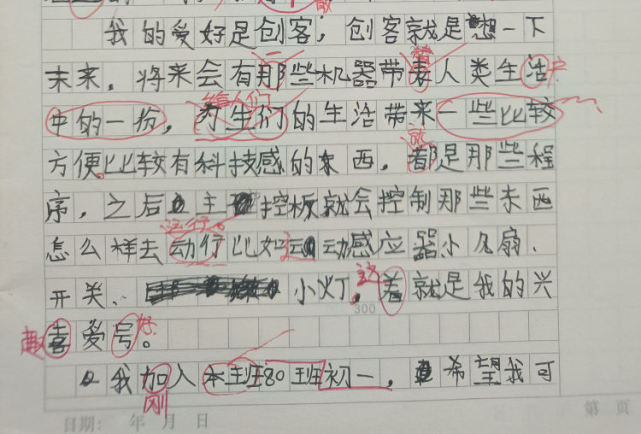 我的爱好是创客，创客就是想一下
未来，将来会有那些机器带着人类生活
中的一份，为生们的生活带来一些比较
方便比较有科技感的东西，都是那些程
序，之后主控板就会控制那些东西
怎么样去动行比如动感应器小风扇、
开关、小灯，这就是我的兴
趣爱好。
300
我加入本班80班初一，希望我可
刚
日期： 年 月 日
第 页